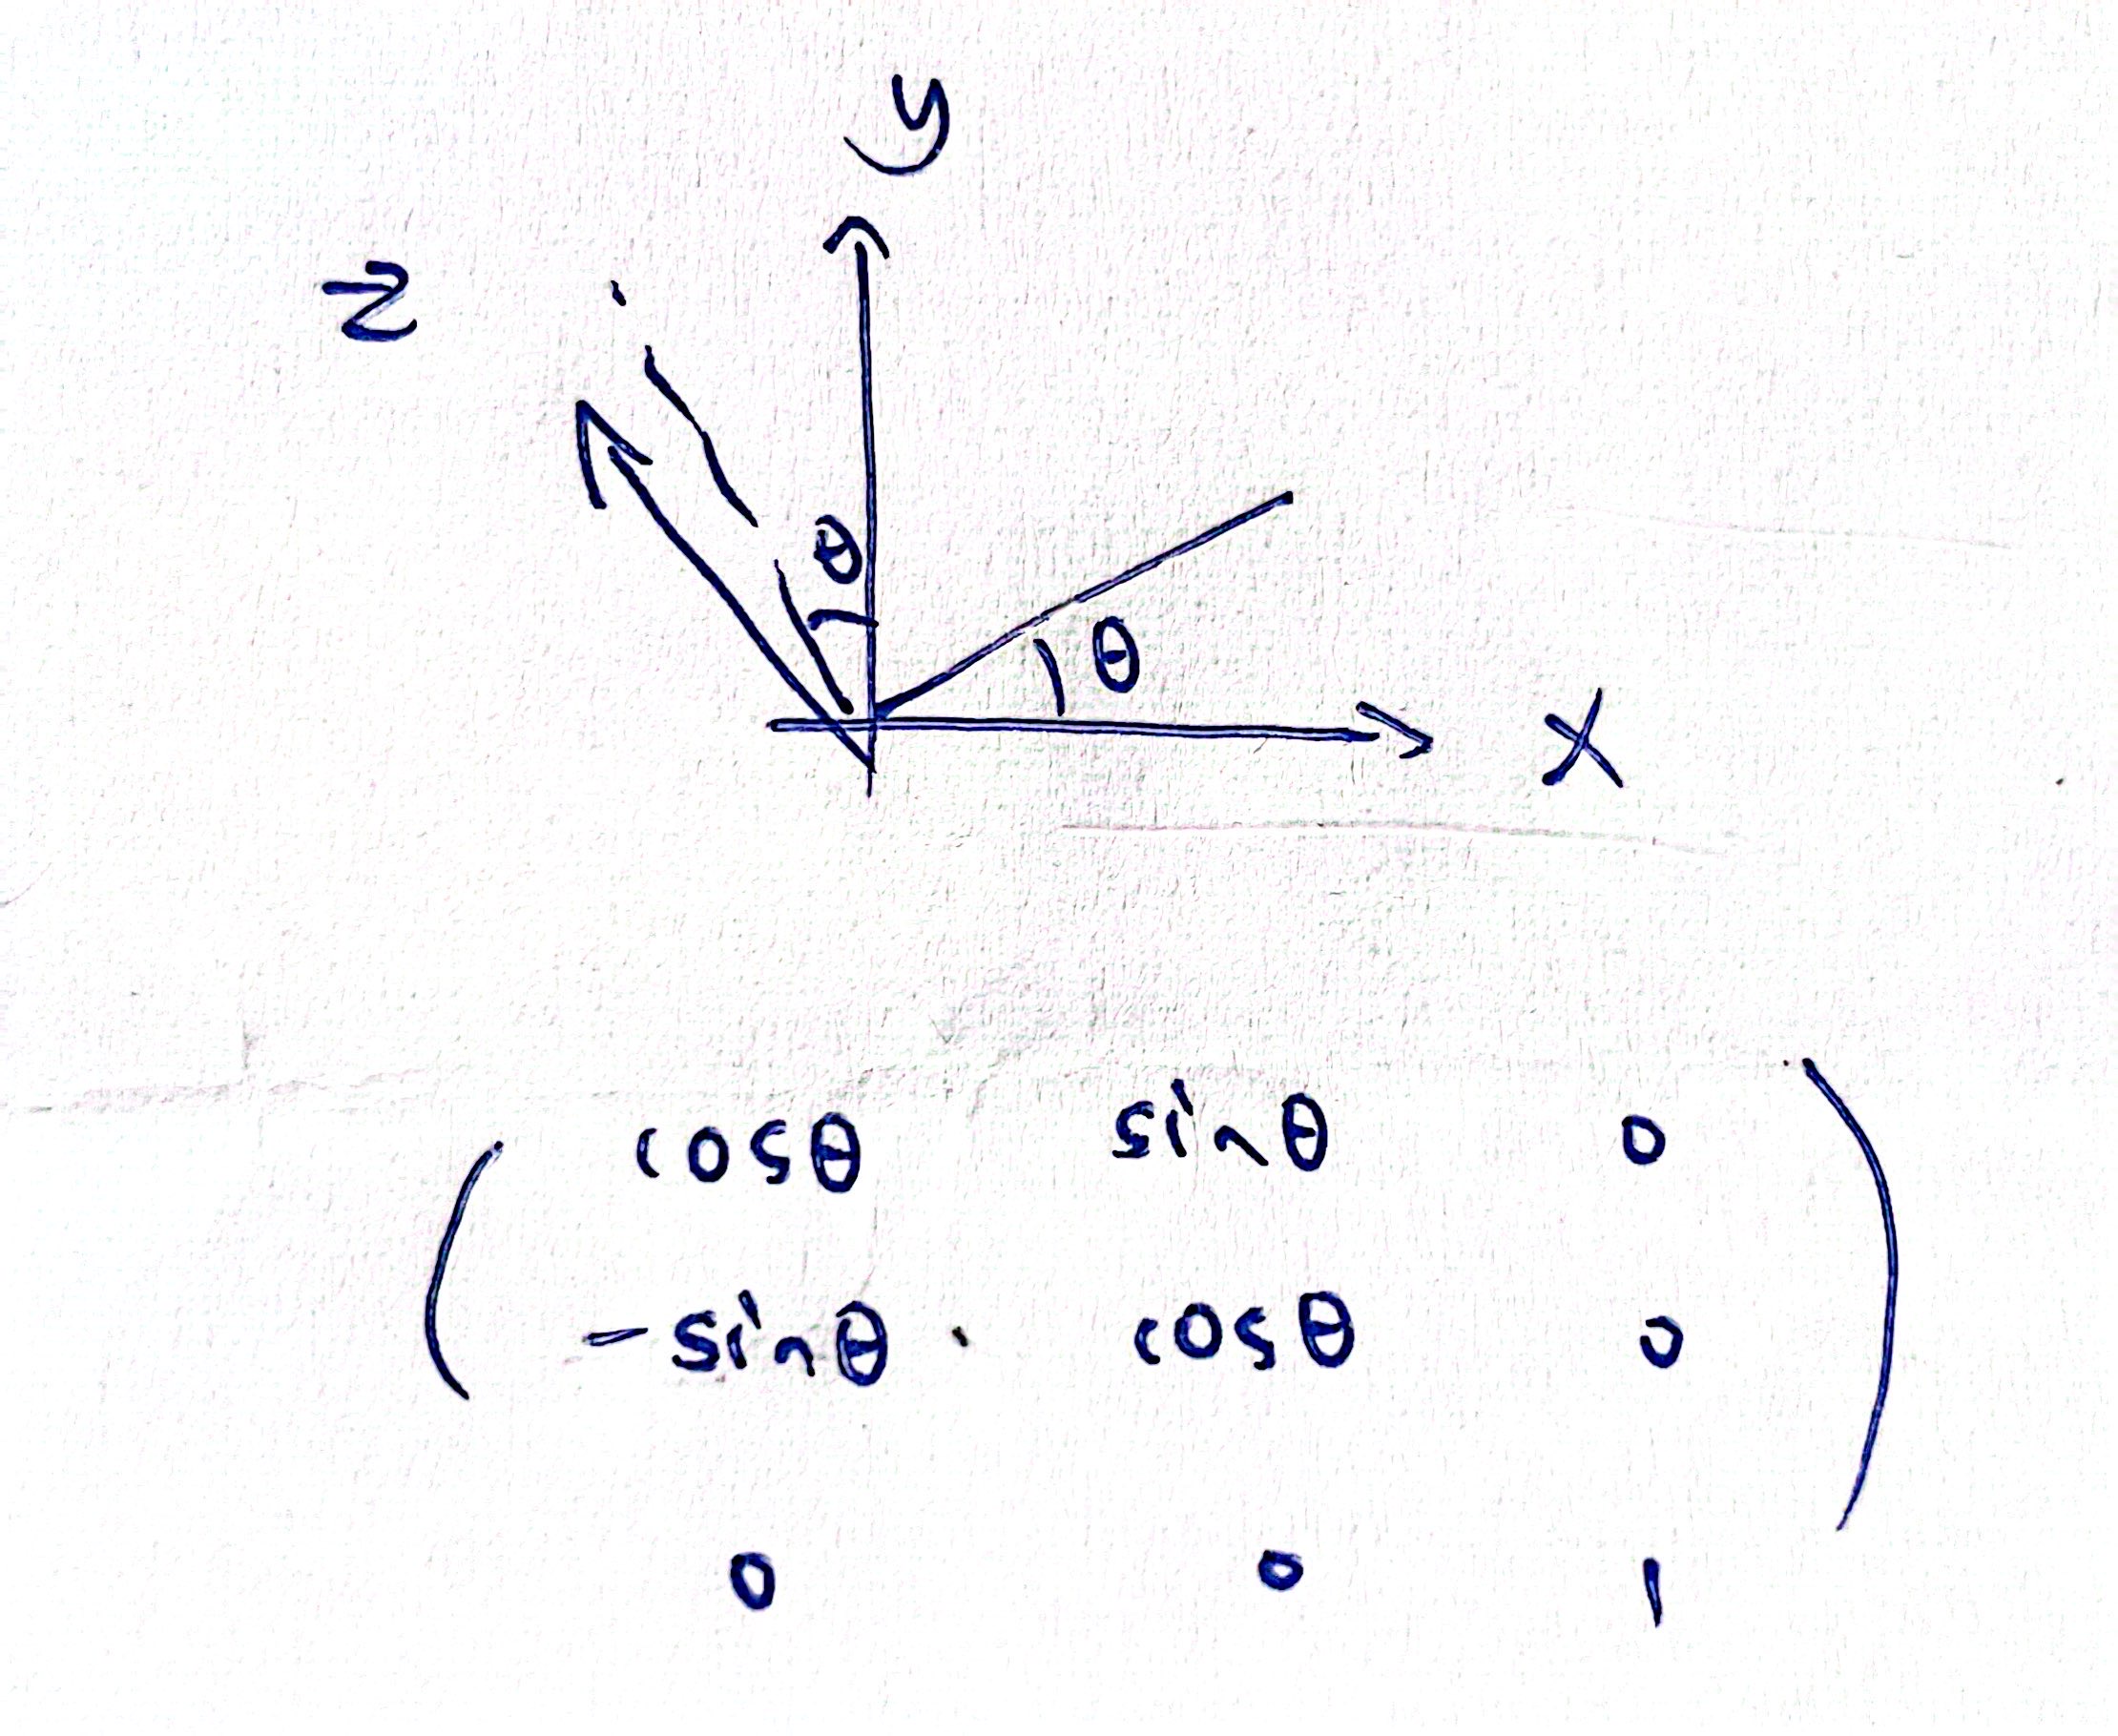 y
z
θ
θ
x
cosθ sinθ 0
-sinθ . cosθ 0
0 0 1